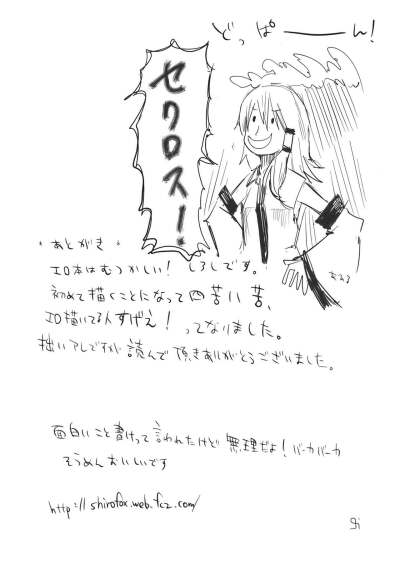 どっぱーーん！
セクロスー！
・あとがき・
エロ本はむつかしい！しろしです。
初めて描くことになって四苦八苦、
エロ描いてる人すげえ！ってなりました。
拙いアレですが読んで頂きありがとうございました。
面白いこと書けって言われたけど無理だよ！バーカバーカ
そうめんおいしいです
http://shirofox.web.fc2.com/